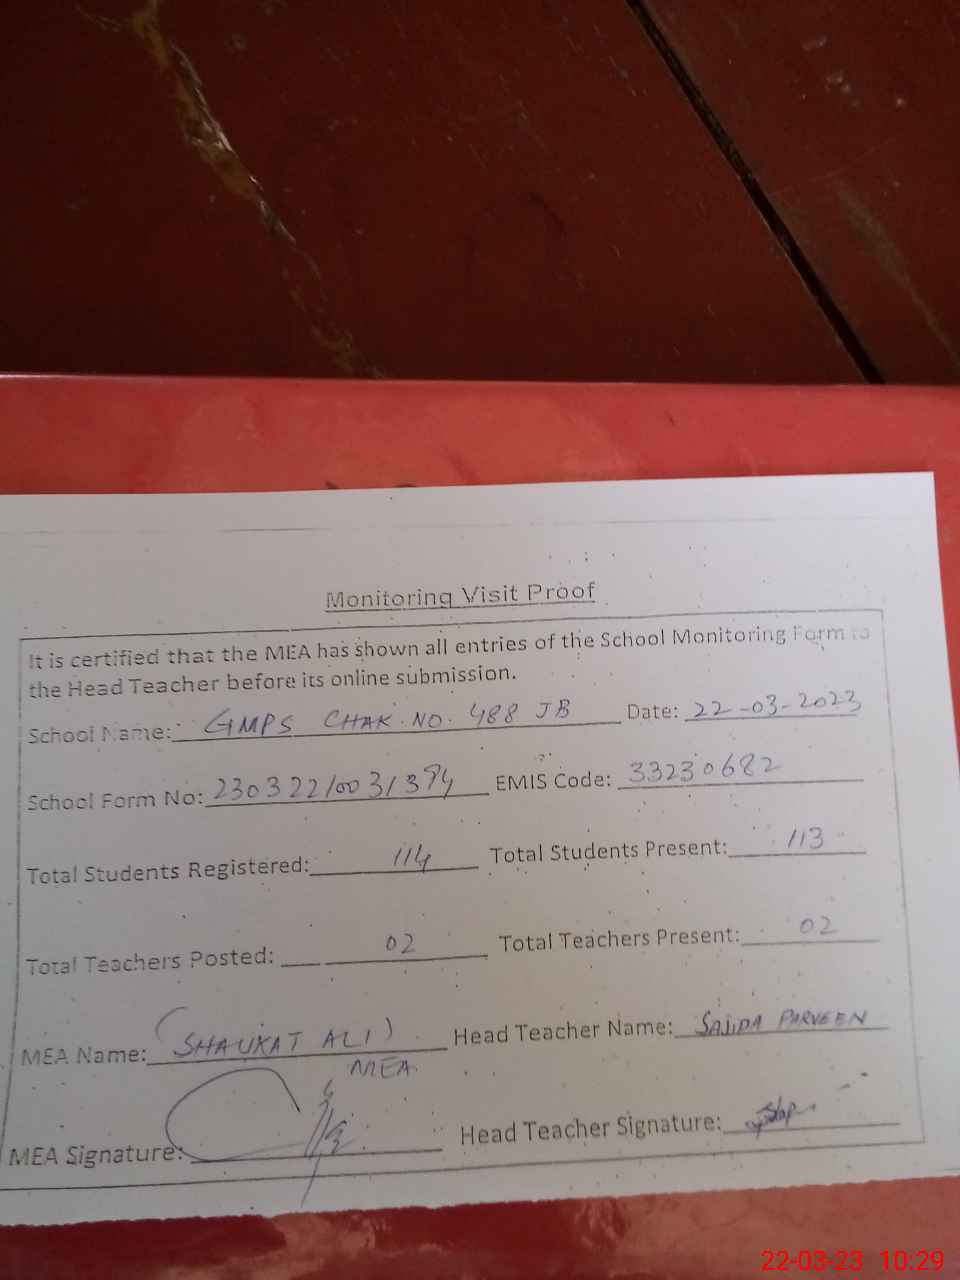 Monitoring Visit Proof
It is certified that the MEA has shown all entries of the School Monitoring Form to
the Head Teacher before its online submission.
School Name: GMPS CHAK NO. 488 JB Date: 22-03-2023
School Form No: EMIS Code: 33230682
Total Students Registered: 114 Total Students Present: 113
Total Teachers Posted: 02 Total Teachers Present: 02
MEA Name: (SHAUKAT ALI) Head Teacher Name: SAJIDA PARVEEN
MEA
MEA Signature: Head Teacher Signature:
22-03-23 10:29